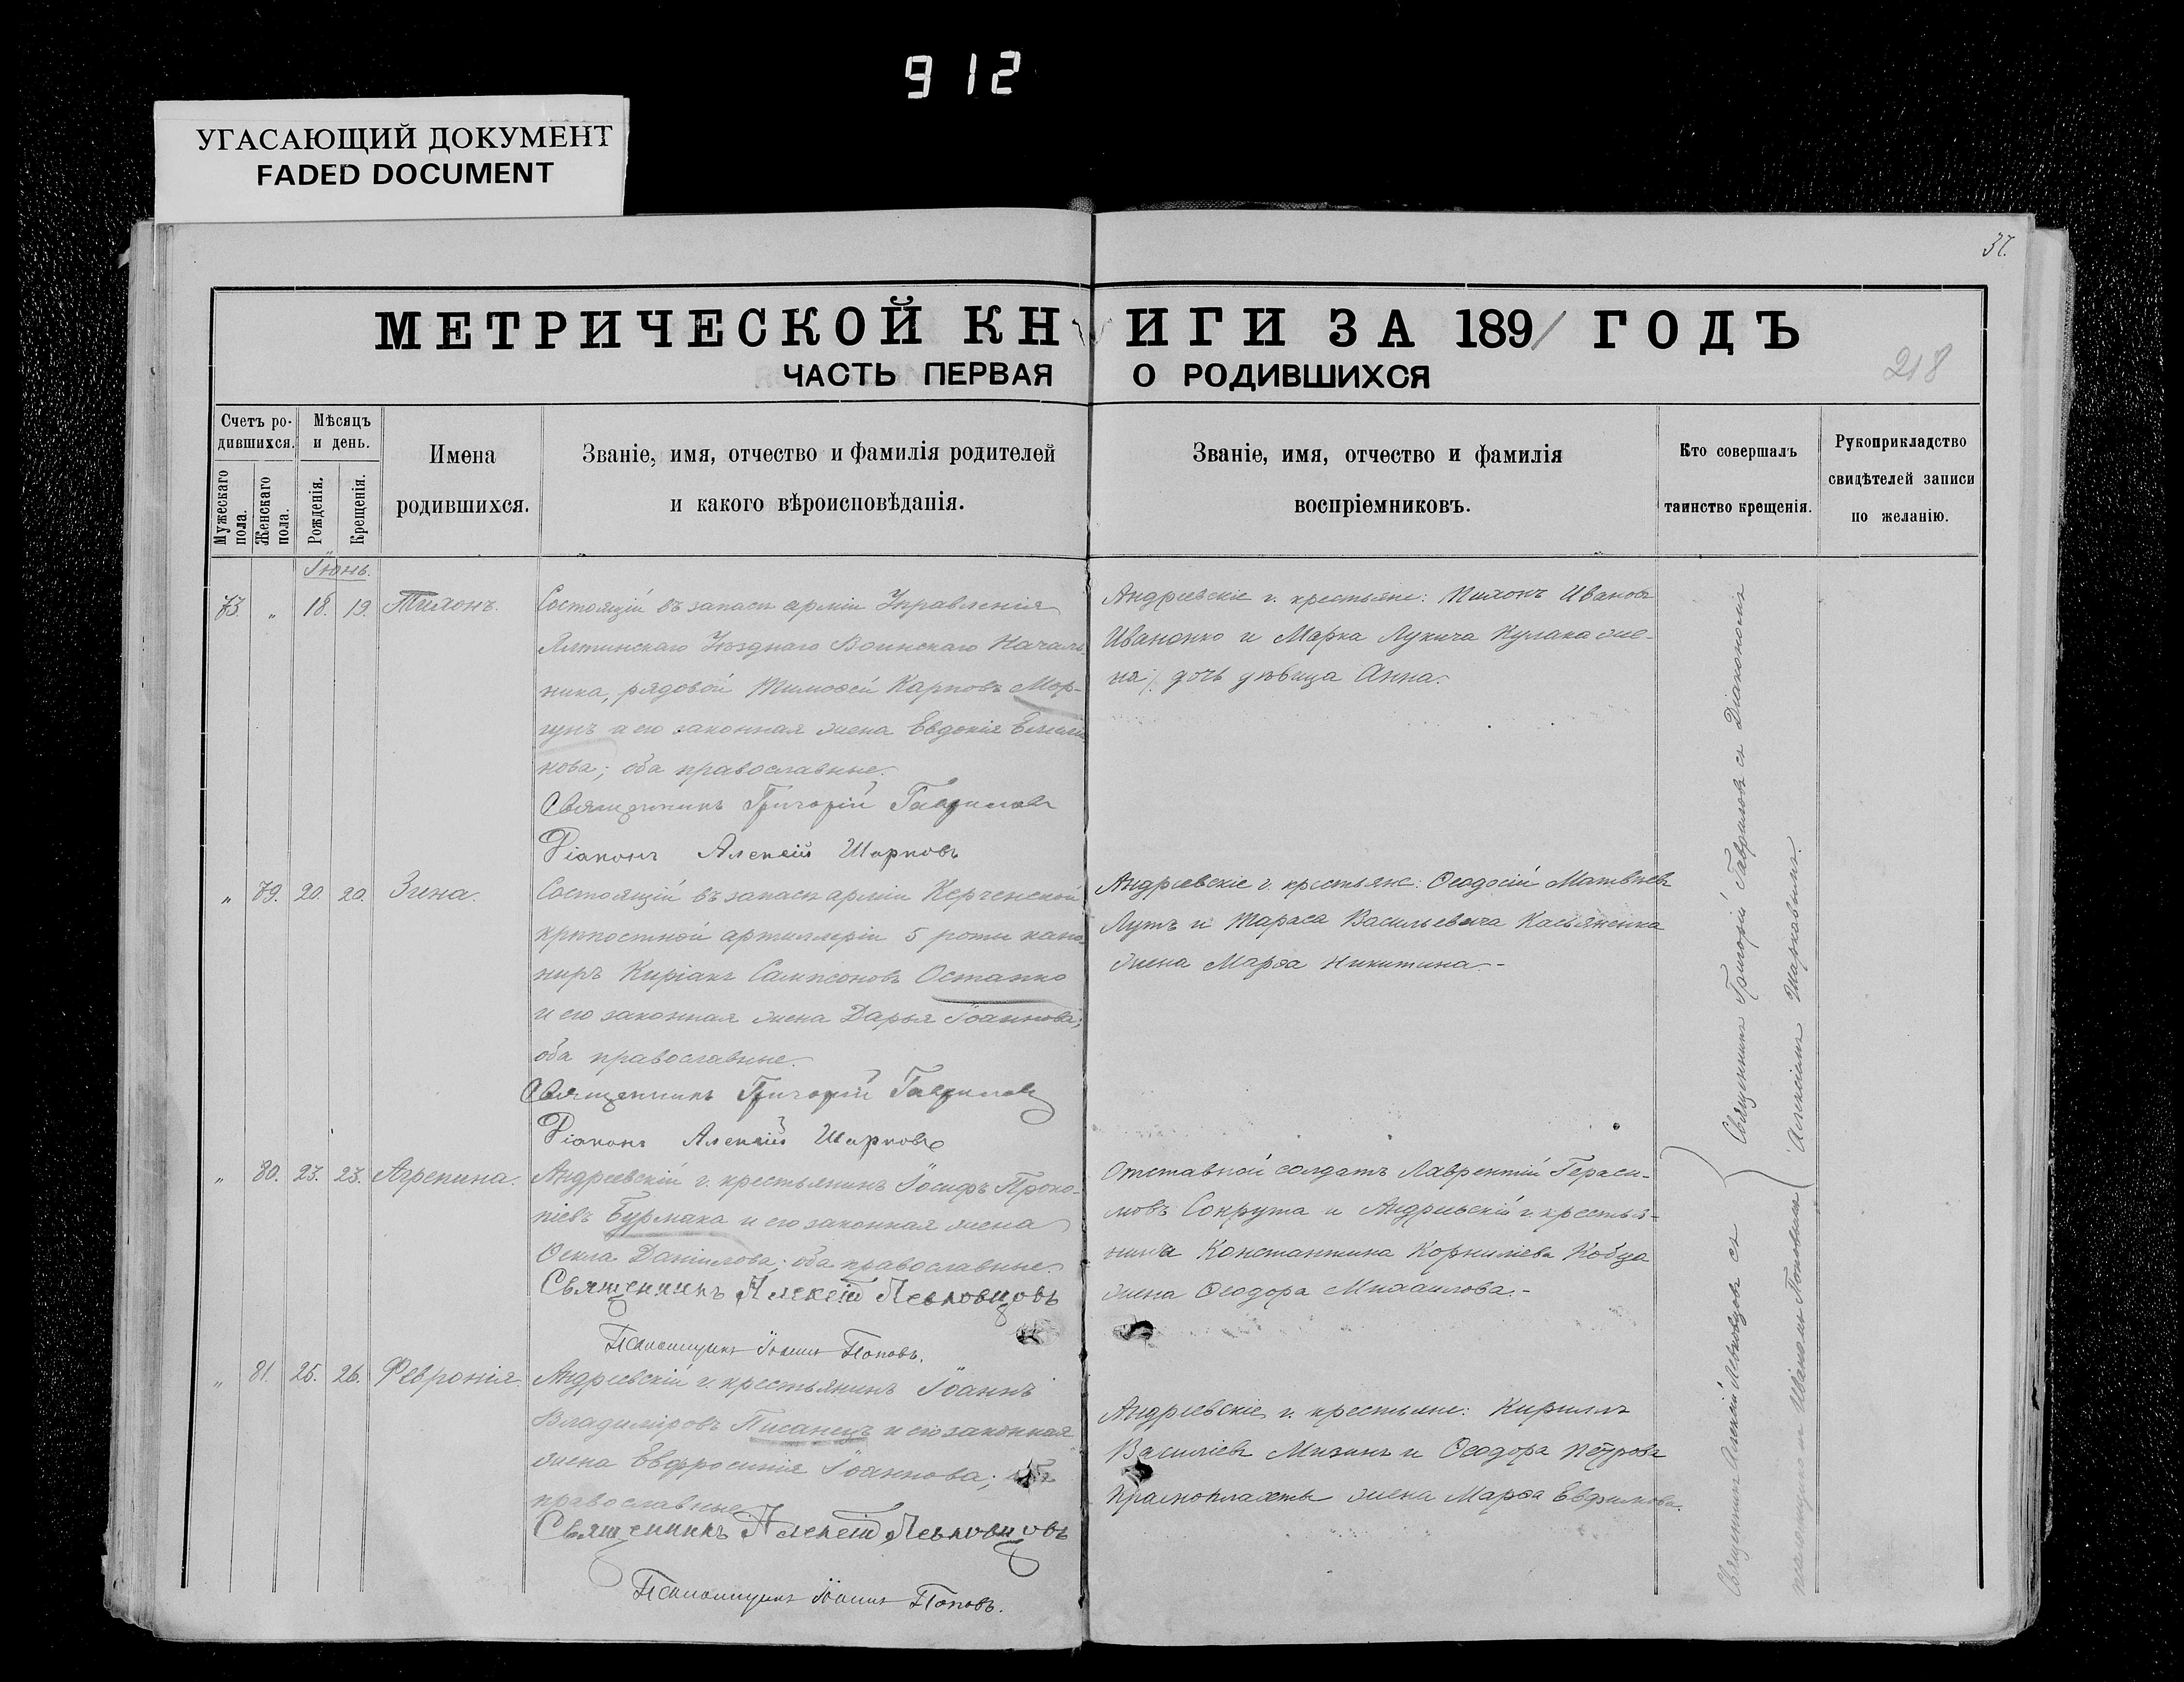 912
УГАСАЮЩИЙ ДОКУМЕНТ
FADED DOCUMENT
37.
МЕТРИЧЕСКОЙ КНИГИ ЗА 1891 ГОДЪ
218
ЧАСТЬ ПЕРВАЯ О РОДИВШИХСЯ
Счетъ ро-
дившихся.
Мужескаго пола.
Женскаго пола.
Мѣсяцъ
и день.
Рожденія.
Крещенія.
Имена
родившихся.
Званіе, имя, отчество и фамилія родителей
и какого вѣроисповѣданія.
Званіе, имя, отчество и фамилія
воспріемниковъ.
Кто совершалъ
таинство крещенія.
Рукоприкладство
свидѣтелей записи
по желанію.
Іюнь.
73. " 18. 19. Тихонъ.
Состоящій въ запасѣ арміи Управленія
Ялтинскаго Уѣзднаго Воинскаго Началь-
ника, рядовой Тимоѳей Карповъ Мор-
гунъ и его законная жена Евдокія Емелья
нова; оба православные.
Священникъ Григорій Гавриловъ
Діаконъ Алексій Шарковъ
Андреевскіе г. крестьяне: Тихонъ Ивановъ
Иваненко и Марка Лукича Кулака
дочь дѣвица Анна.
" 79. 20. 20. Зина.
Состоящій въ запасѣ арміи Керченской
крѣпостной артиллеріи 5 роты кано-
ниръ Киріакъ Сампсоновъ Остапко
и его законная жена Дарья Іоаннова;
оба православные.
Священникъ Григорій Гавриловъ
Діаконъ Алексій Шарковъ
Андреевскіе г. крестьяне: Ѳеодосій Матвѣевъ
Лутъ и Тараса Васильевича Касьяненка
жена Марѳа Никитина.-
" 80. 23. 23. Агрепина.
Андреевскій г. крестьянинъ Іосифъ Проко-
піевъ Бурмака и его законная жена
Ѳекла Данилова; оба православные.
Священникъ Алексій Левковцовъ
Псаломщикъ Іоаннъ Поповъ.
Отставной солдатъ Лаврентій Гераси-
мовъ Сокрута и Андреевскій г. крестья-
нина Константина Корниліева Кобца
жена Ѳеодора Михаилова.-
" 81. 25. 26. Февронія.
Андреевскій г. крестьянинъ Іоаннъ
Владиміровъ Писанецъ и его законная
жена Евфросинія Іоаннова; оба
православные
Священникъ Алексій Левковцовъ
Псаломщикъ Іоаннъ Поповъ.
Андреевскіе г. крестьяне: Кириллъ
Василіевъ Мизинъ и Ѳеодора Петрова
жена Марѳа Евфимова.
Священникъ Григорій Гавриловъ съ Діакономъ
Алексіемъ Шарковымъ.
Священникъ Алексій Левковцовъ съ
псаломщикомъ Иваномъ Поповымъ